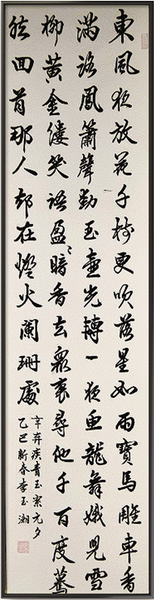 東風夜放花千樹更吹落星如雨寶馬雕車香
滿路鳳簫聲動玉壺光轉一夜魚龍舞蛾兒雪
柳黃金縷笑語盈々暗香去衆裏尋他千百度驀
然回首那人却在燈火闌珊處
辛弃疾青玉案元夕
乙巳新春李玉